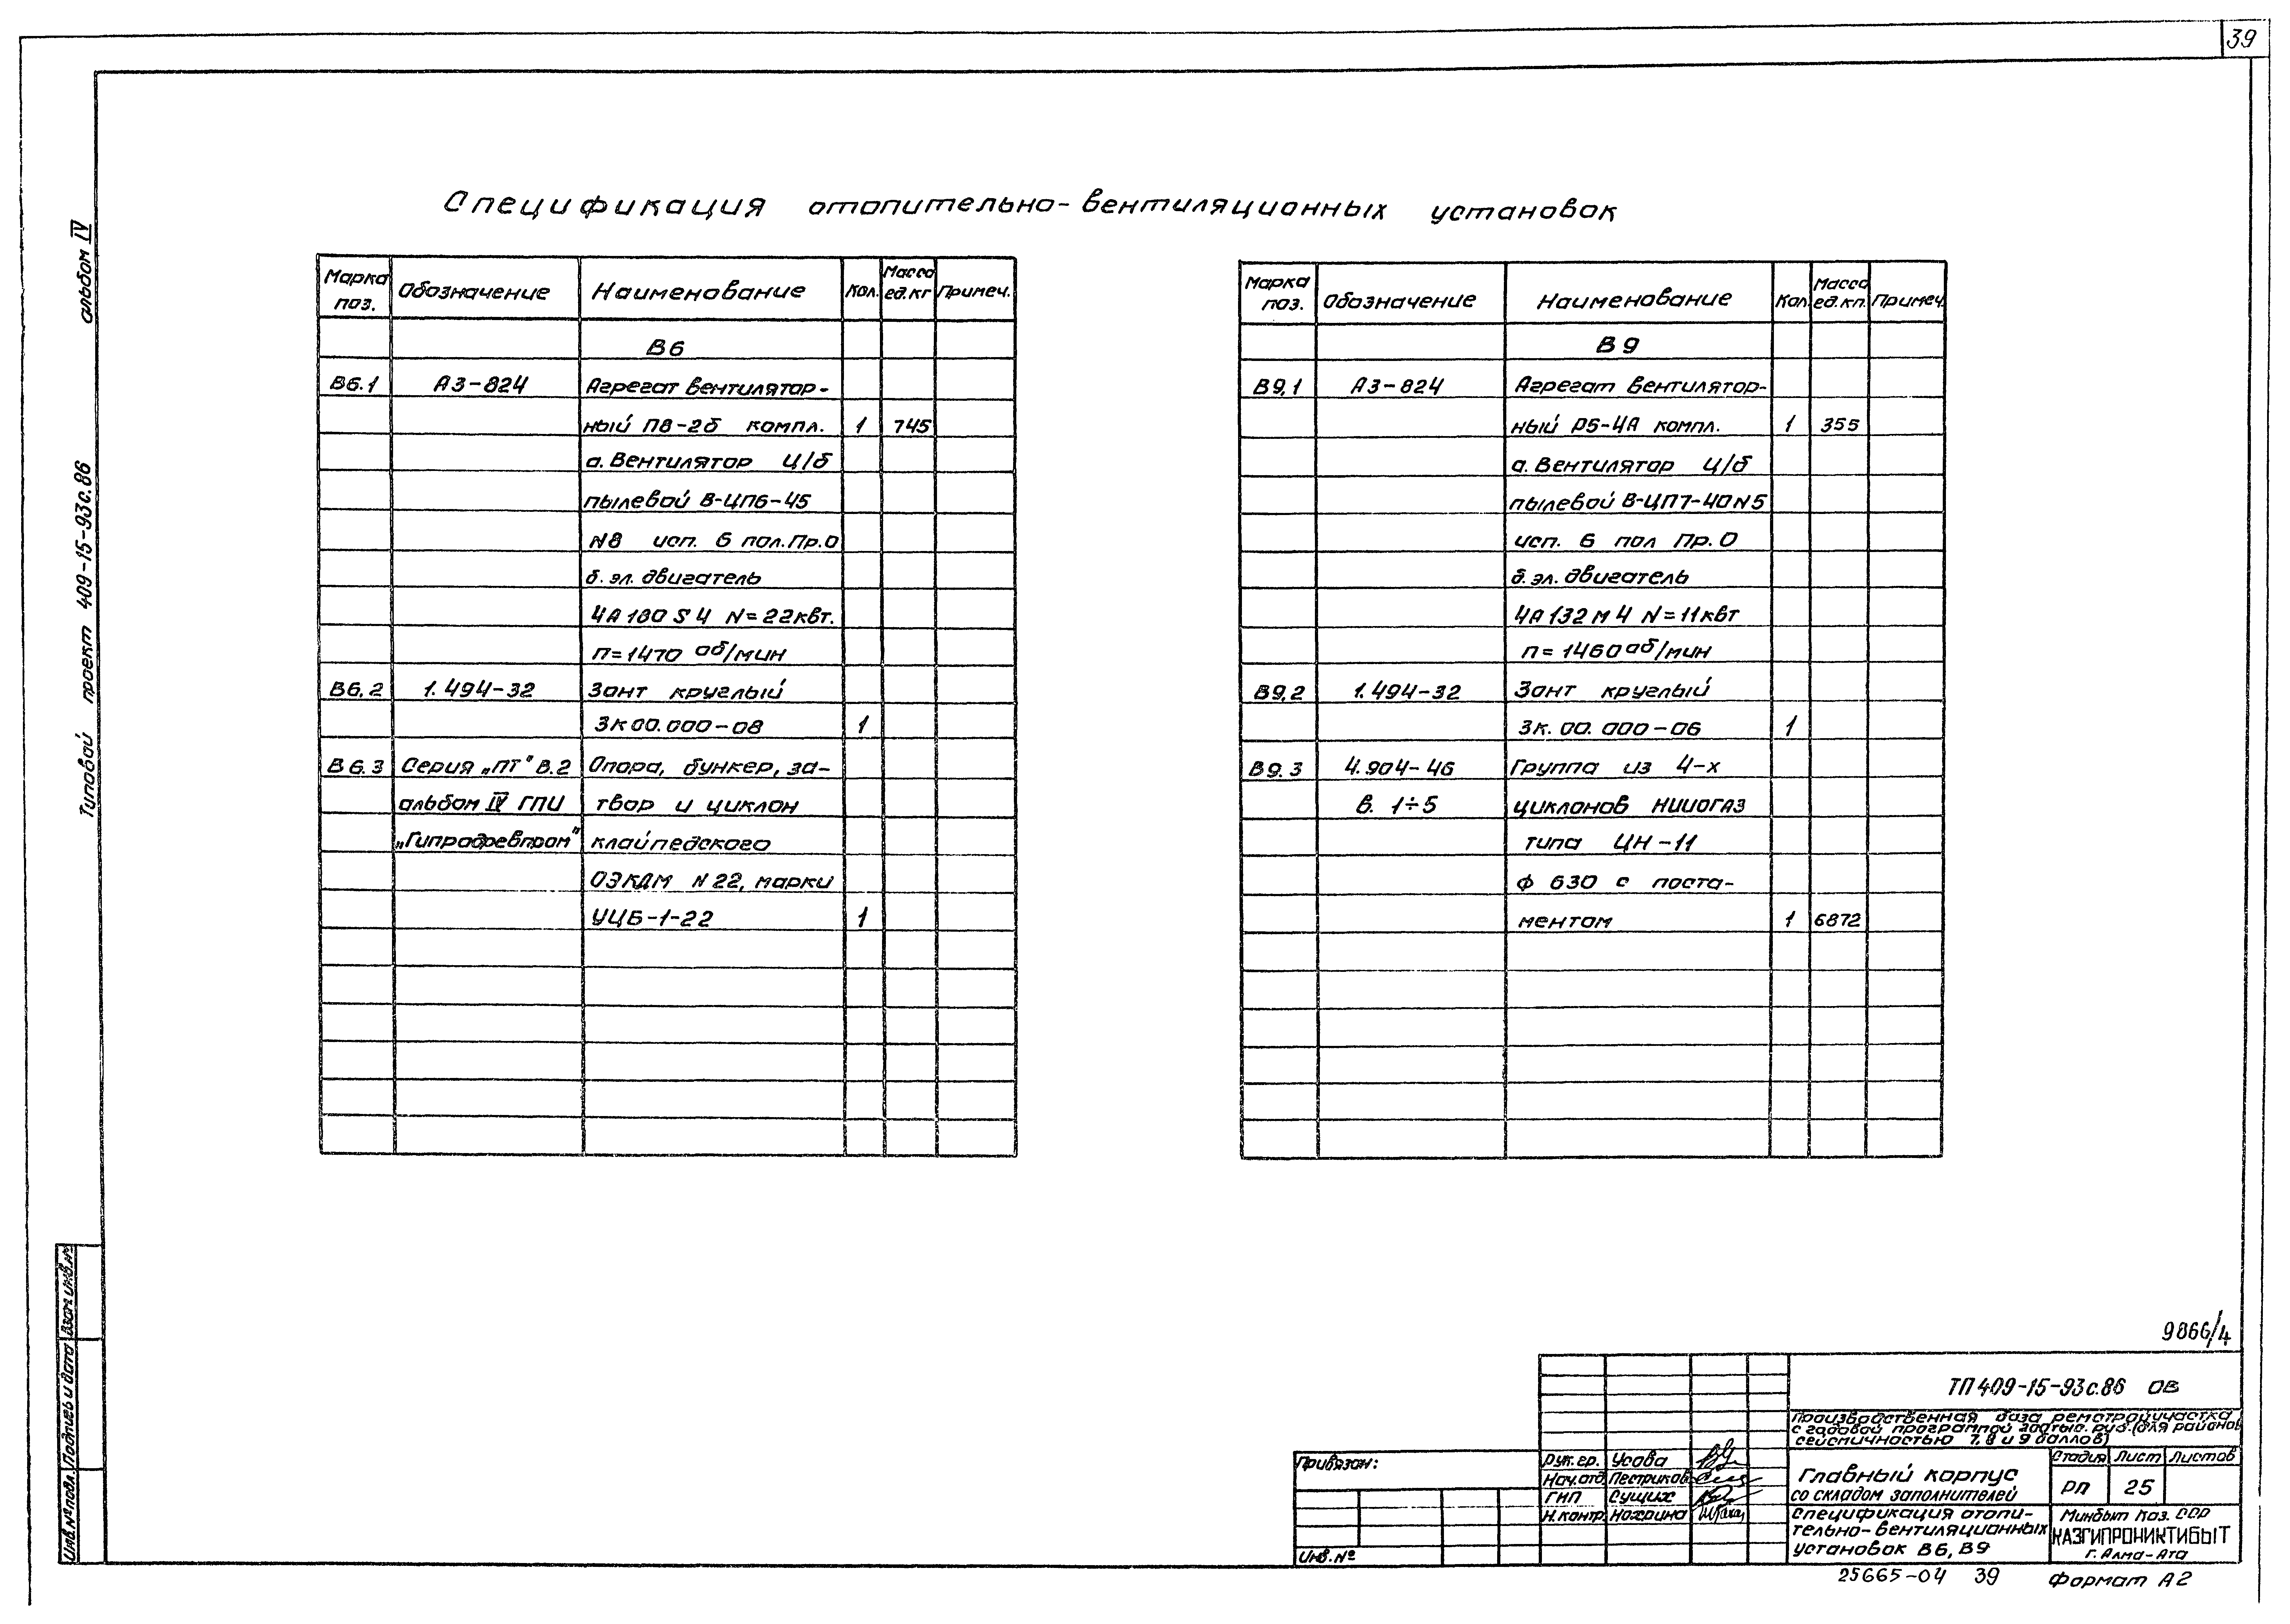 39
Спецификация отопительно-вентиляционных установок
альбом IV
Типовой проект 409-15-93с.86
Марка поз. Обозначение Наименование Кол. Масса ед.кг Примеч.
В6
В6.1 А3-824 Агрегат вентилятор-
ный П8-2б компл. 1 745
а. Вентилятор ц/б
пылевой В-ЦП6-45
N8 исп. 6 пол. Пр.О
б. эл. двигатель
4А180 S4 N=22квт.
п=1470 об/мин
В6.2 1.494-32 Зонт круглый
ЗК00.000-08 1
В6.3 Серия „ПТ" В.2 Опора, бункер, за-
альбом IV ГПИ твор и циклон
„Гипродревпром" клайпедского
ОЭКДМ N22, марки
УЦБ-1-22 1
Марка поз. Обозначение Наименование Кол. Масса ед.кг. Примеч
В9
В9.1 А3-824 Агрегат вентилятор-
ный Р5-4А компл. 1 355
а. Вентилятор ц/б
пылевой В-ЦП7-40N5
исп. 6 пол Пр.О
б. эл. двигатель
4А132М4 N=11квт
п=1460об/мин
В9.2 1.494-32 Зонт круглый
Зк.00.000-06 1
В9.3 4.904-46 Группа из 4-х
в. 1÷5 циклонов НИИОГАЗ
типа ЦН-11
Ф 630 с поста-
ментом 1 6872
Инв.№подл. Подпись и дата Взам.инв.№
9866/4
ТП409-15-93с.86 ОВ
Производственная база ремстройучастка
с годовой программой
руб.(для районов
сейсмичностью 7,8 и 9 баллов)
Привязан:
Инв.№
Рук.гр. Усова
Нач.отд Пестриков
ГИП Сущих
Н.контр. Нохрина
Главный корпус
со складом заполнителей
Стадия Лист Листов
РП 25
Спецификация отопи-
тельно-вентиляционных
установок В6, В9
Минбыт Каз. ССР
КАЗГИПРОНИКТИБЫТ
г. Алма-Ата
25665-04 39 Формат А2